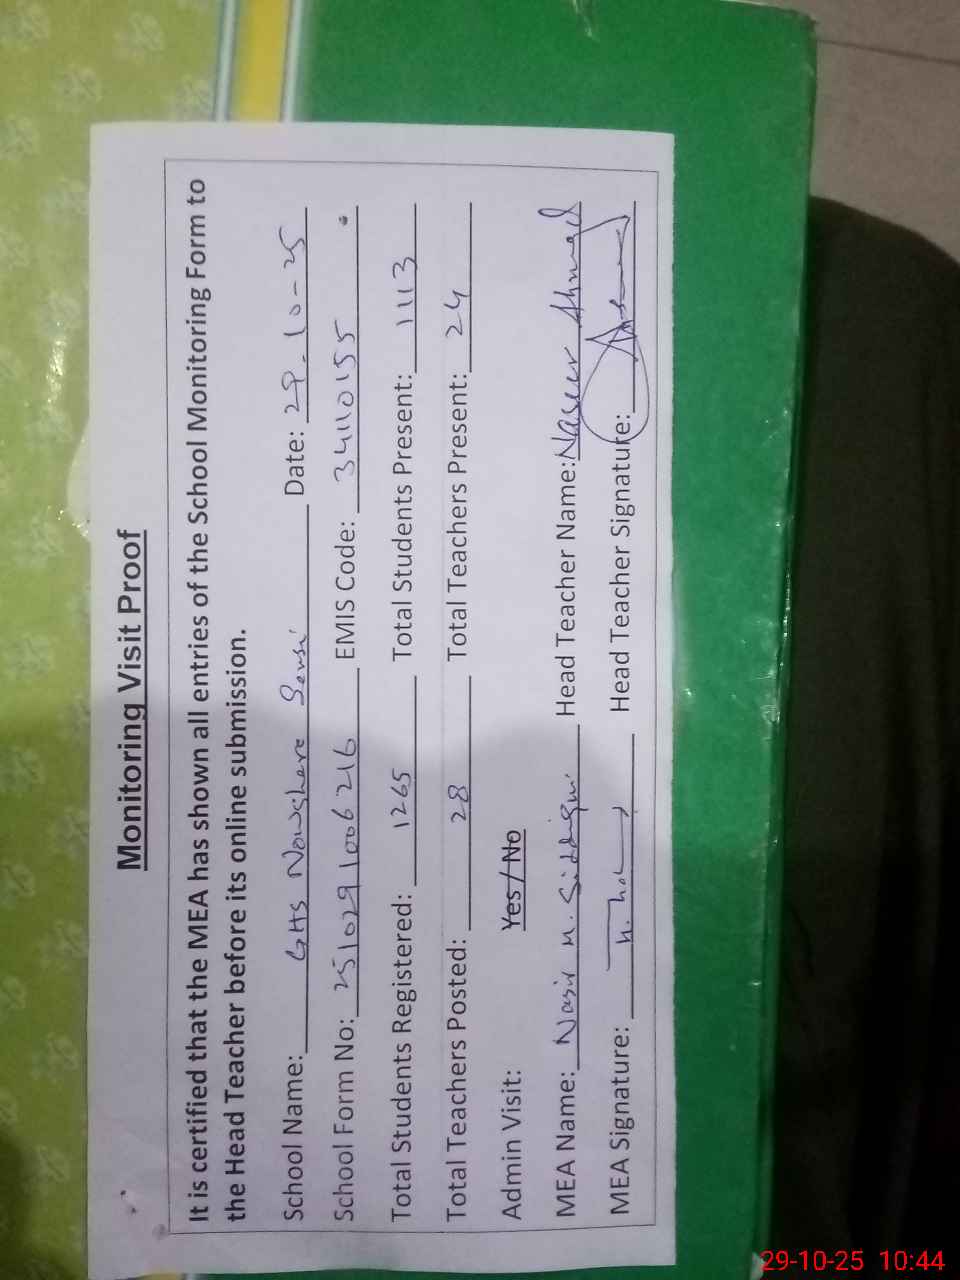 Monitoring Visit Proof
It is certified that the MEA has shown all entries of the School Monitoring Form to
the Head Teacher before its online submission.
School Name: GHS Nowshera Date: 29-10-25
School Form No: 251029 1006216 EMIS Code: 34110155
Total Students Registered: 1265 Total Students Present: 1113
Total Teachers Posted: 28 Total Teachers Present: 24
Admin Visit: Yes / No
MEA Name: Nasir M. Siddiqui Head Teacher Name: Naseer Ahmed
MEA Signature: Head Teacher Signature:
29-10-25 10:44